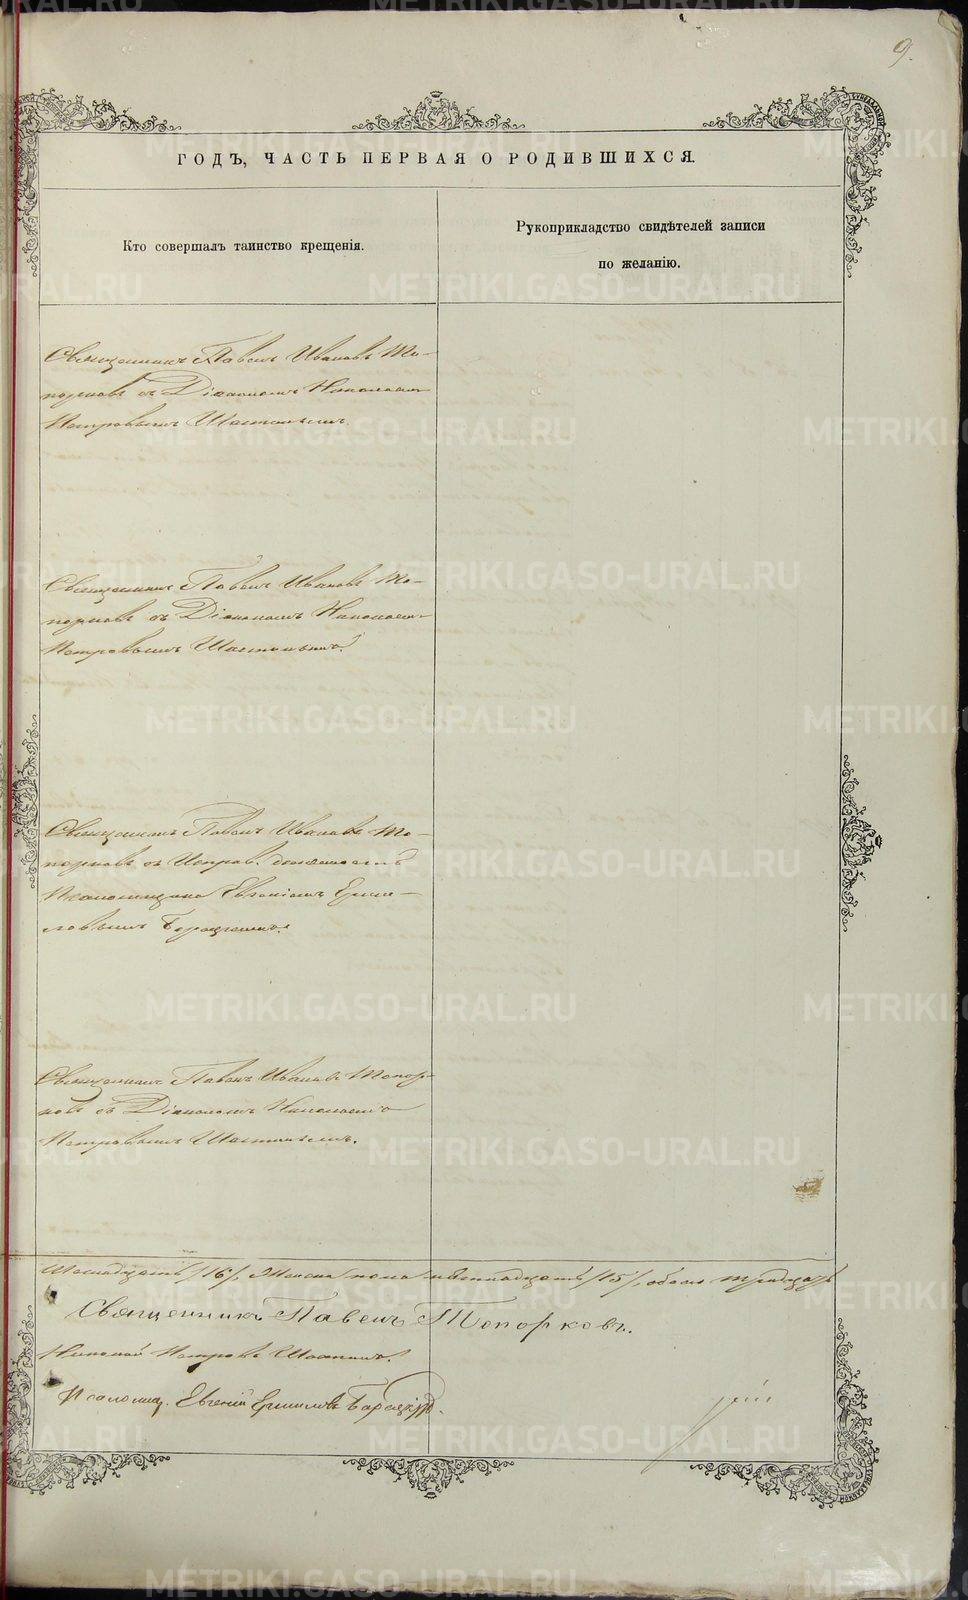 9.
ГОДЪ, ЧАСТЬ ПЕРВАЯ О РОДИВШИХСЯ.
Кто совершалъ таинство крещенія.
Рукоприкладство свидѣтелей записи
по желанію.
Священникъ Павелъ Ивановъ То-
порковъ съ Діакономъ Николаемъ
Петровымъ
Священникъ Павелъ Ивановъ То-
порковъ съ Діакономъ Николаемъ
Петровымъ
Священникъ Павелъ Ивановъ То-
порковъ съ Исправ. должность
Псаломщика Евгеніемъ Ерми-
ловымъ
Священникъ Павелъ Ивановъ Топор-
ковъ съ Діакономъ Николаемъ
Петровымъ
Шестнадцать /16/, Женска пола пятнадцать /15/, обоего тридцать
Священникъ Павелъ Топорковъ.
Николай Петровъ
Псаломщ. Евгеній Ермиловъ
METRIKI.GASO-URAL.RU